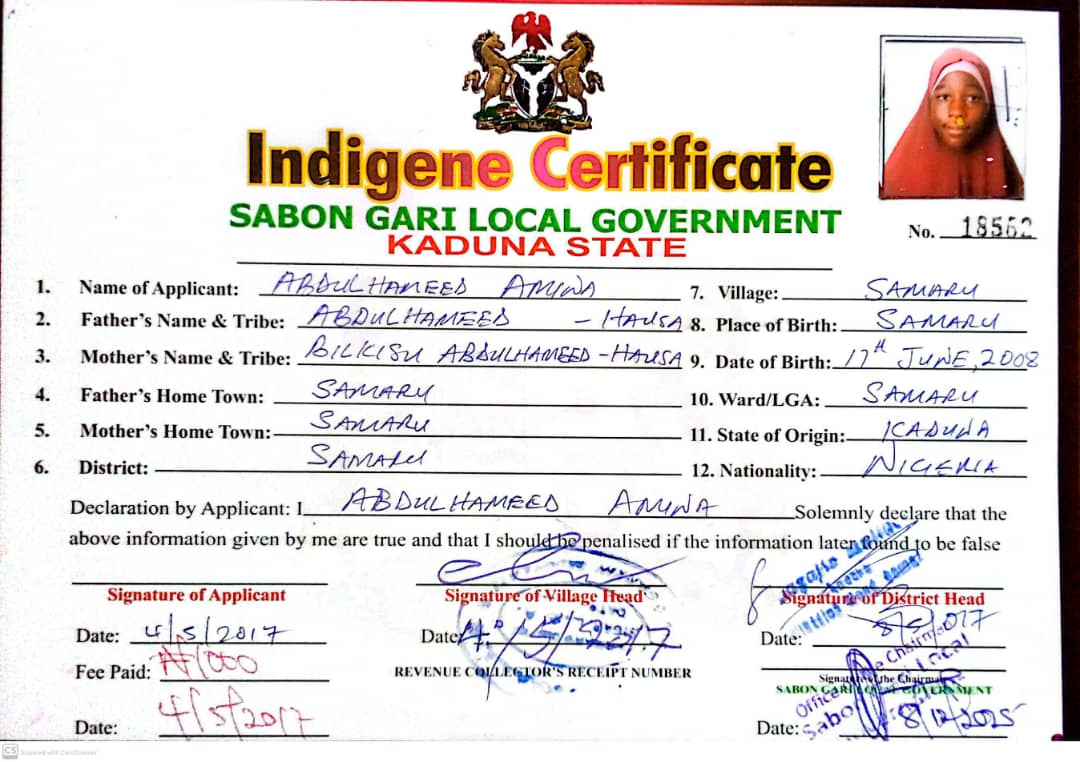 Indigene Certificate
SABON GARI LOCAL GOVERNMENT
KADUNA STATE
No. 18562
1. Name of Applicant: ABDULHAMEED AMINA
2. Father's Name & Tribe: ABDULHAMEED - HAUSA
3. Mother's Name & Tribe: BILKISU ABDULHAMEED - HAUSA
4. Father's Home Town: SAMARU
5. Mother's Home Town: SAMARU
6. District: SAMARU
7. Village: SAMARU
8. Place of Birth: SAMARU
9. Date of Birth: 17th JUNE, 2008
10. Ward/LGA: SAMARU
11. State of Origin: KADUNA
12. Nationality: NIGERIA
Declaration by Applicant: I ABDULHAMEED AMINA Solemnly declare that the
above information given by me are true and that I should be penalised if the information later found to be false
Signature of Applicant
Date: 4/5/2017
Fee Paid: ₦1000
Date: 4/5/2017
Signature of Village Head
Date: 4/5/2017
REVENUE COLLECTOR'S RECEIPT NUMBER
Signature of District Head
Date: 2017
Signature of the Chairman
SABON GARI LOCAL GOVERNMENT
Office Chairman
Sabon Local
Date: 8/12/2025
CS Scanned with CamScanner